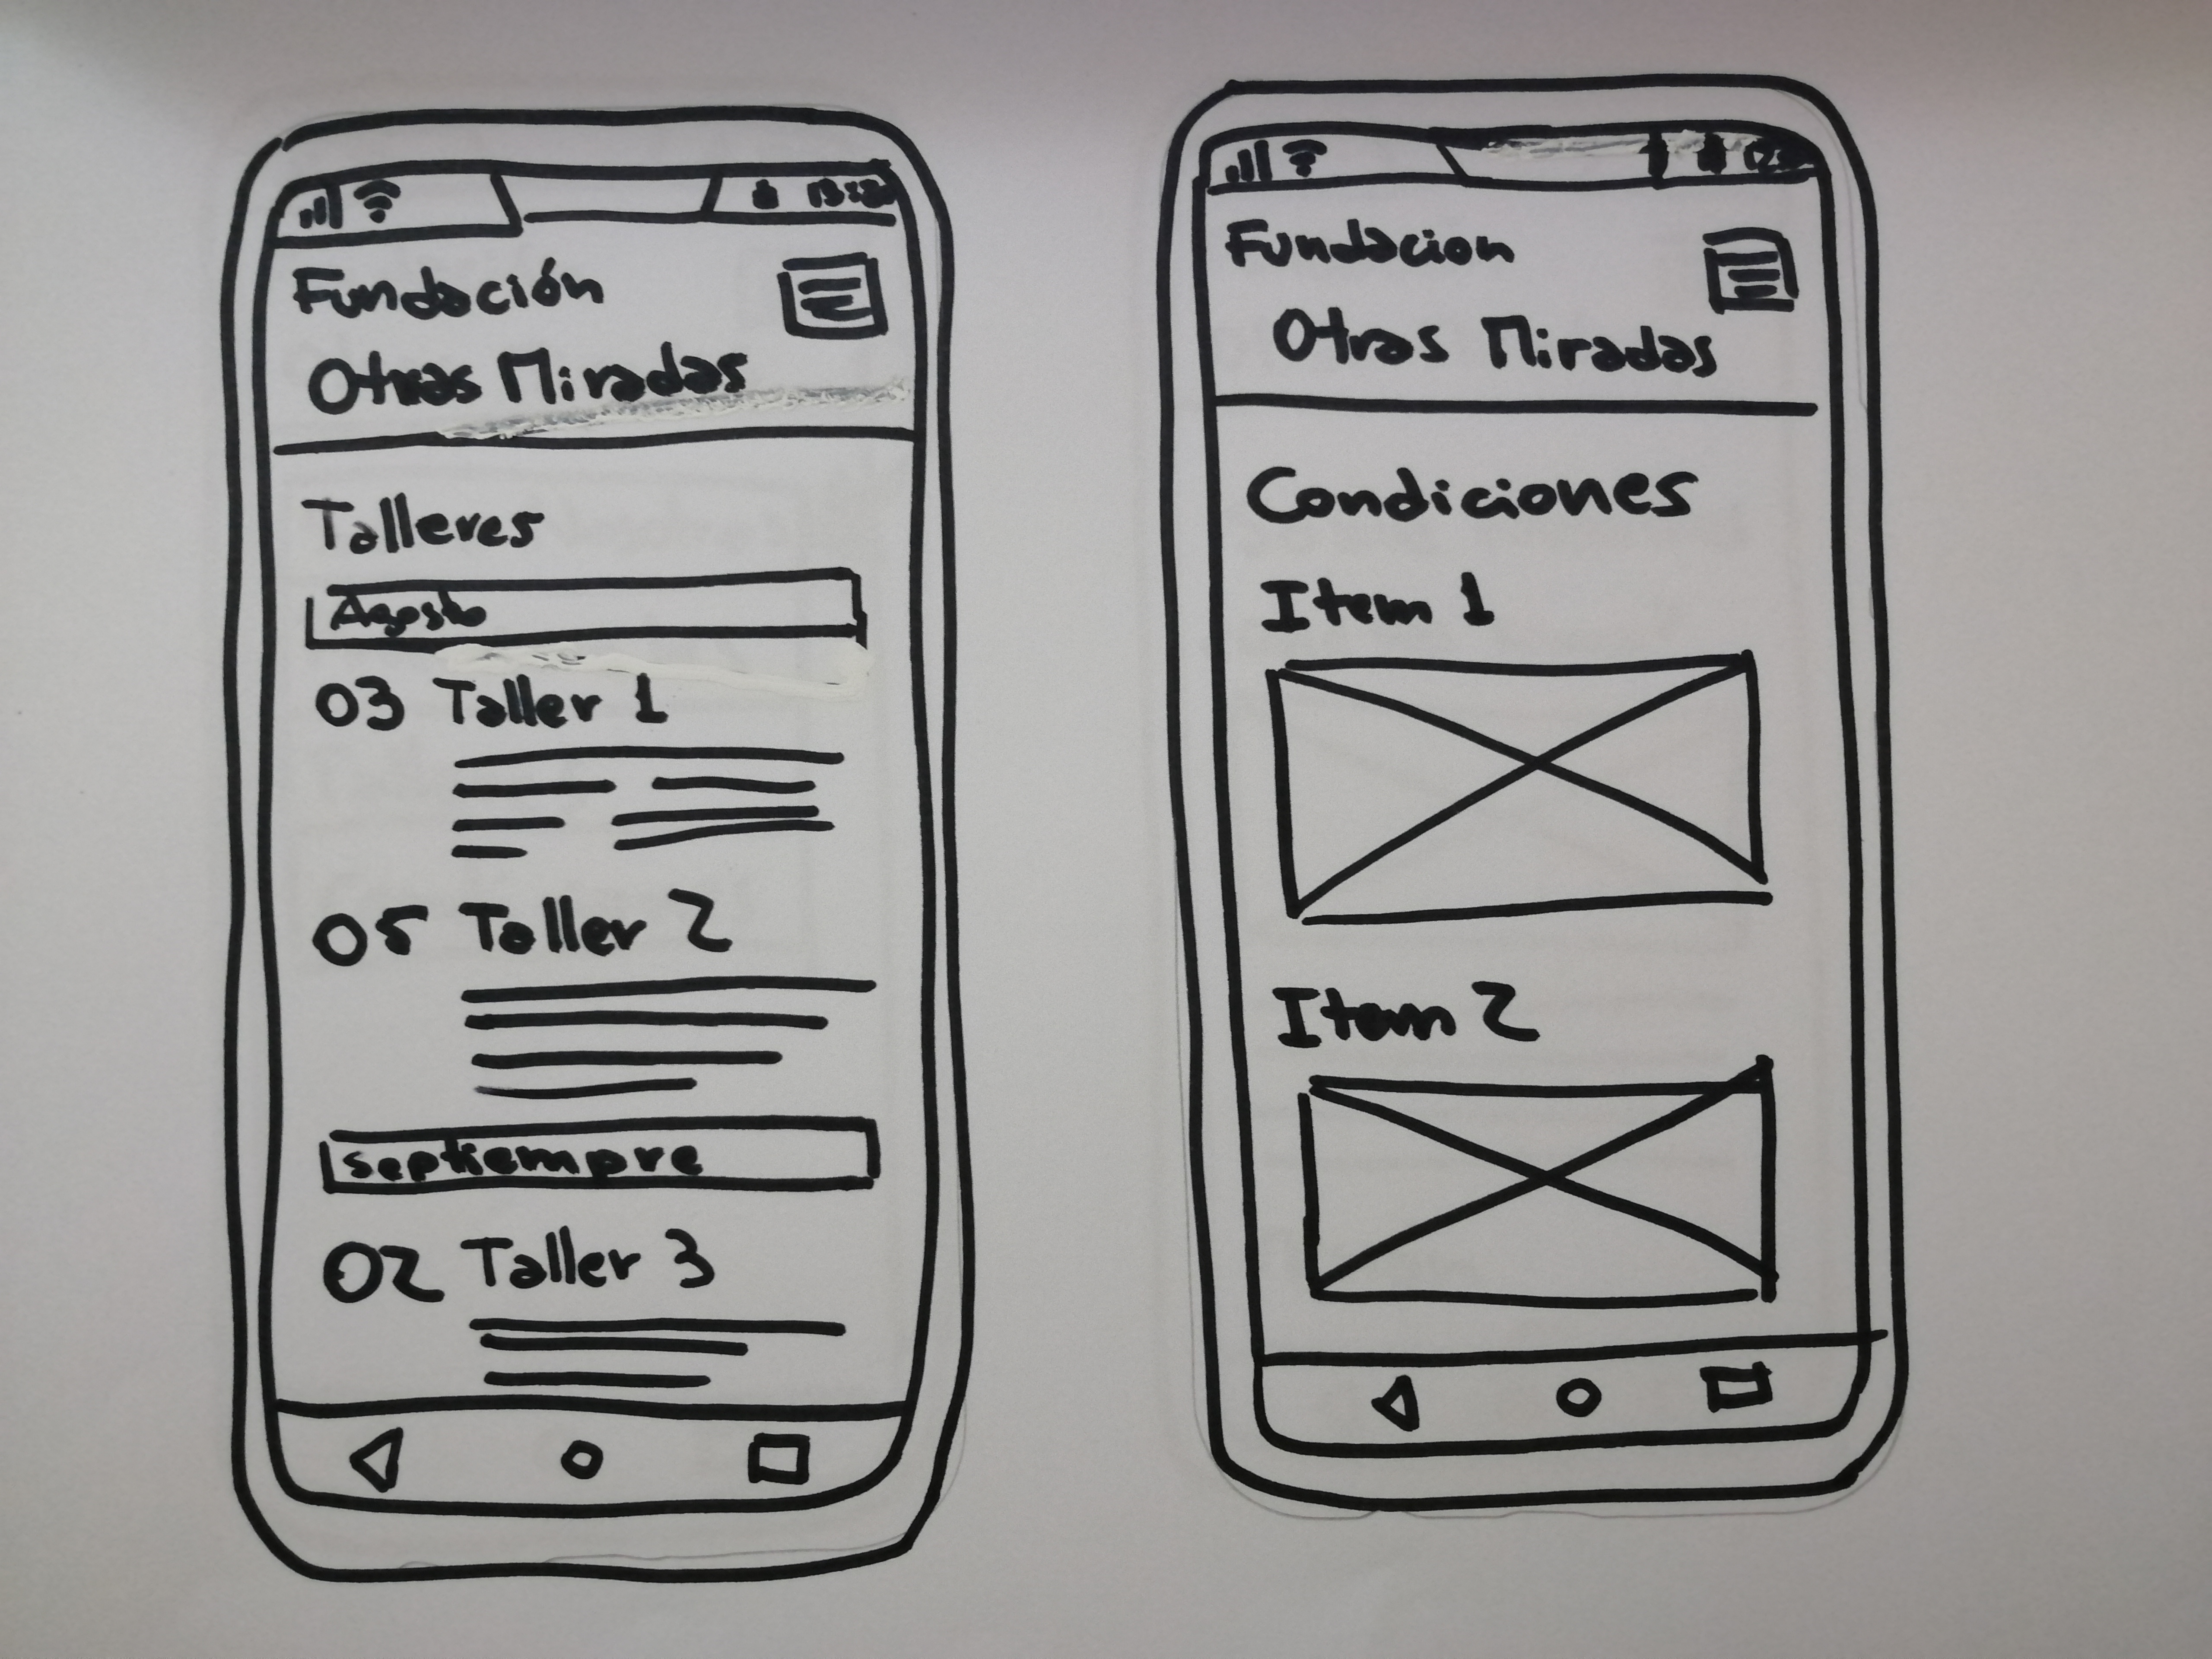 Fundación
Otras Miradas
Talleres
Agosto
03 Taller 1
05 Taller 2
septiempre
02 Taller 3
Fundacion
Otras Miradas
Condiciones
Item 1
Item 2